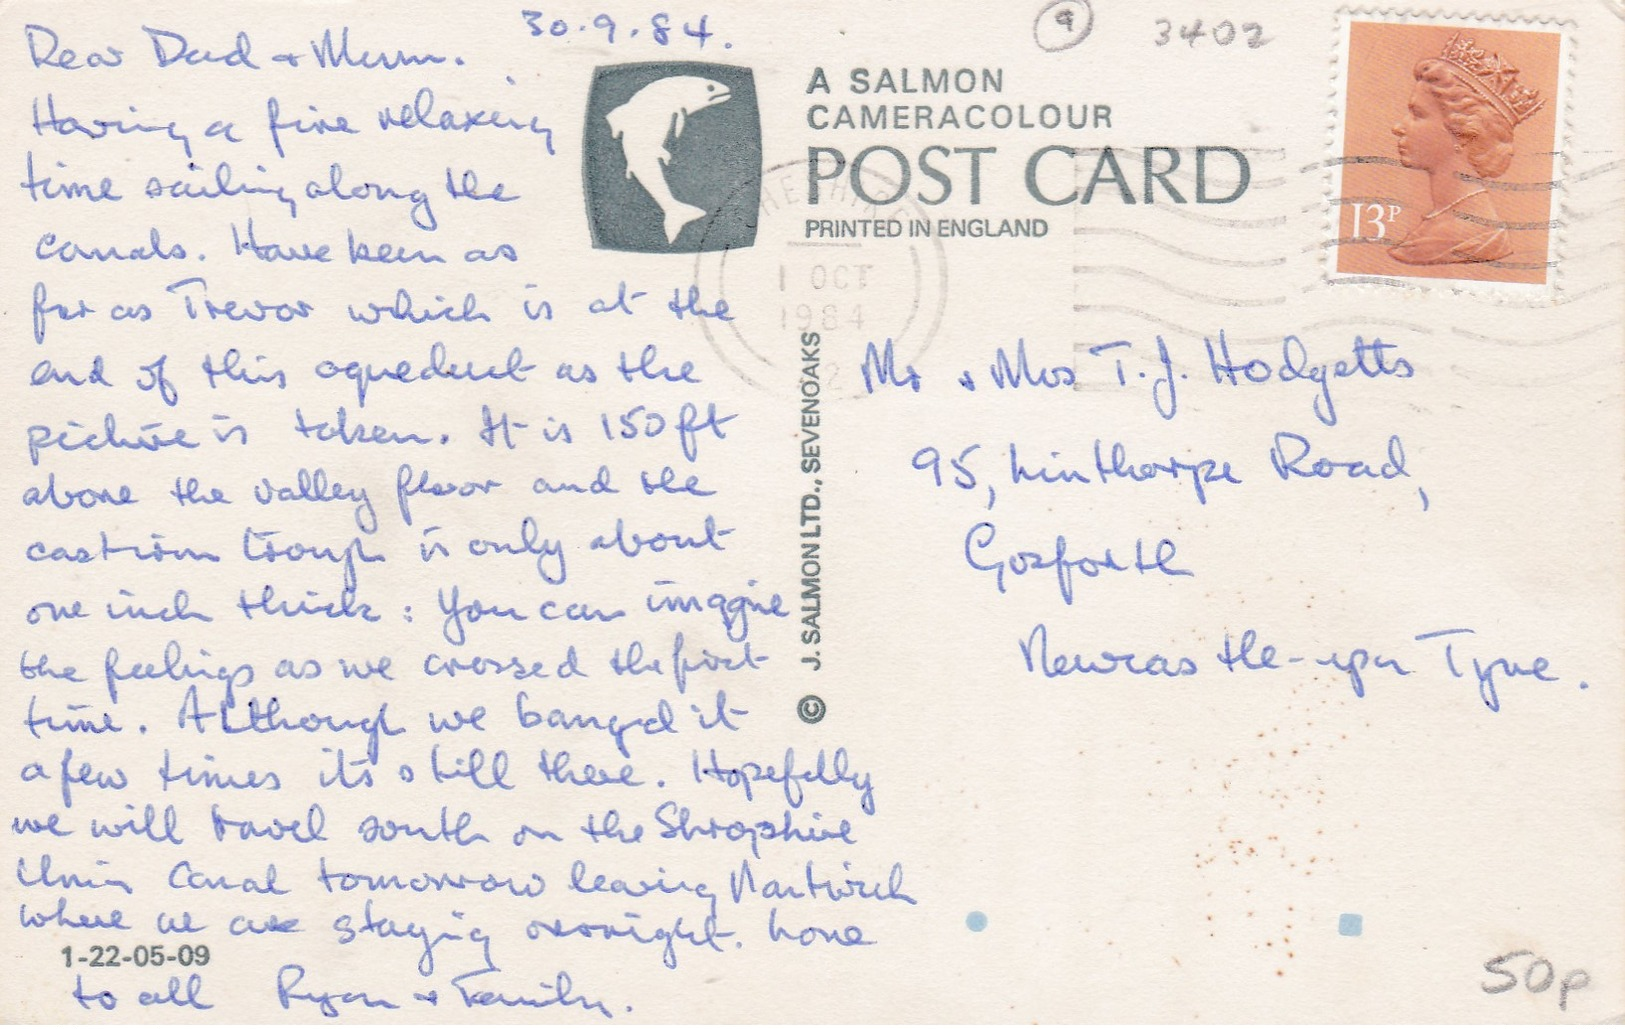 30.9.84.
Dear Dad + Mum.
Having a fine relaxing
time sailing along the
canals. Have been as
far as Trevor which is at the
end of this aqueduct as the
picture is taken. It is 150 ft
above the valley floor and the
cast iron trough is only about
one inch thick : You can imagine
the feelings as we crossed the first
time. Although we banged it
a few times its still there. Hopefully
we will travel south on the Shropshire
Union Canal tomorrow leaving Nantwich
where we are staying overnight. Love
to all Ryan + Family.
1-22-05-09
A SALMON
CAMERACOLOUR
POST CARD
PRINTED IN ENGLAND
© J. SALMON LTD., SEVENOAKS
9
3402
13P
1 OCT
1984
Mr + Mrs T. J. Hodgetts
95, Linthorpe Road,
Gosforth
Newcastle-upon Tyne.
50p